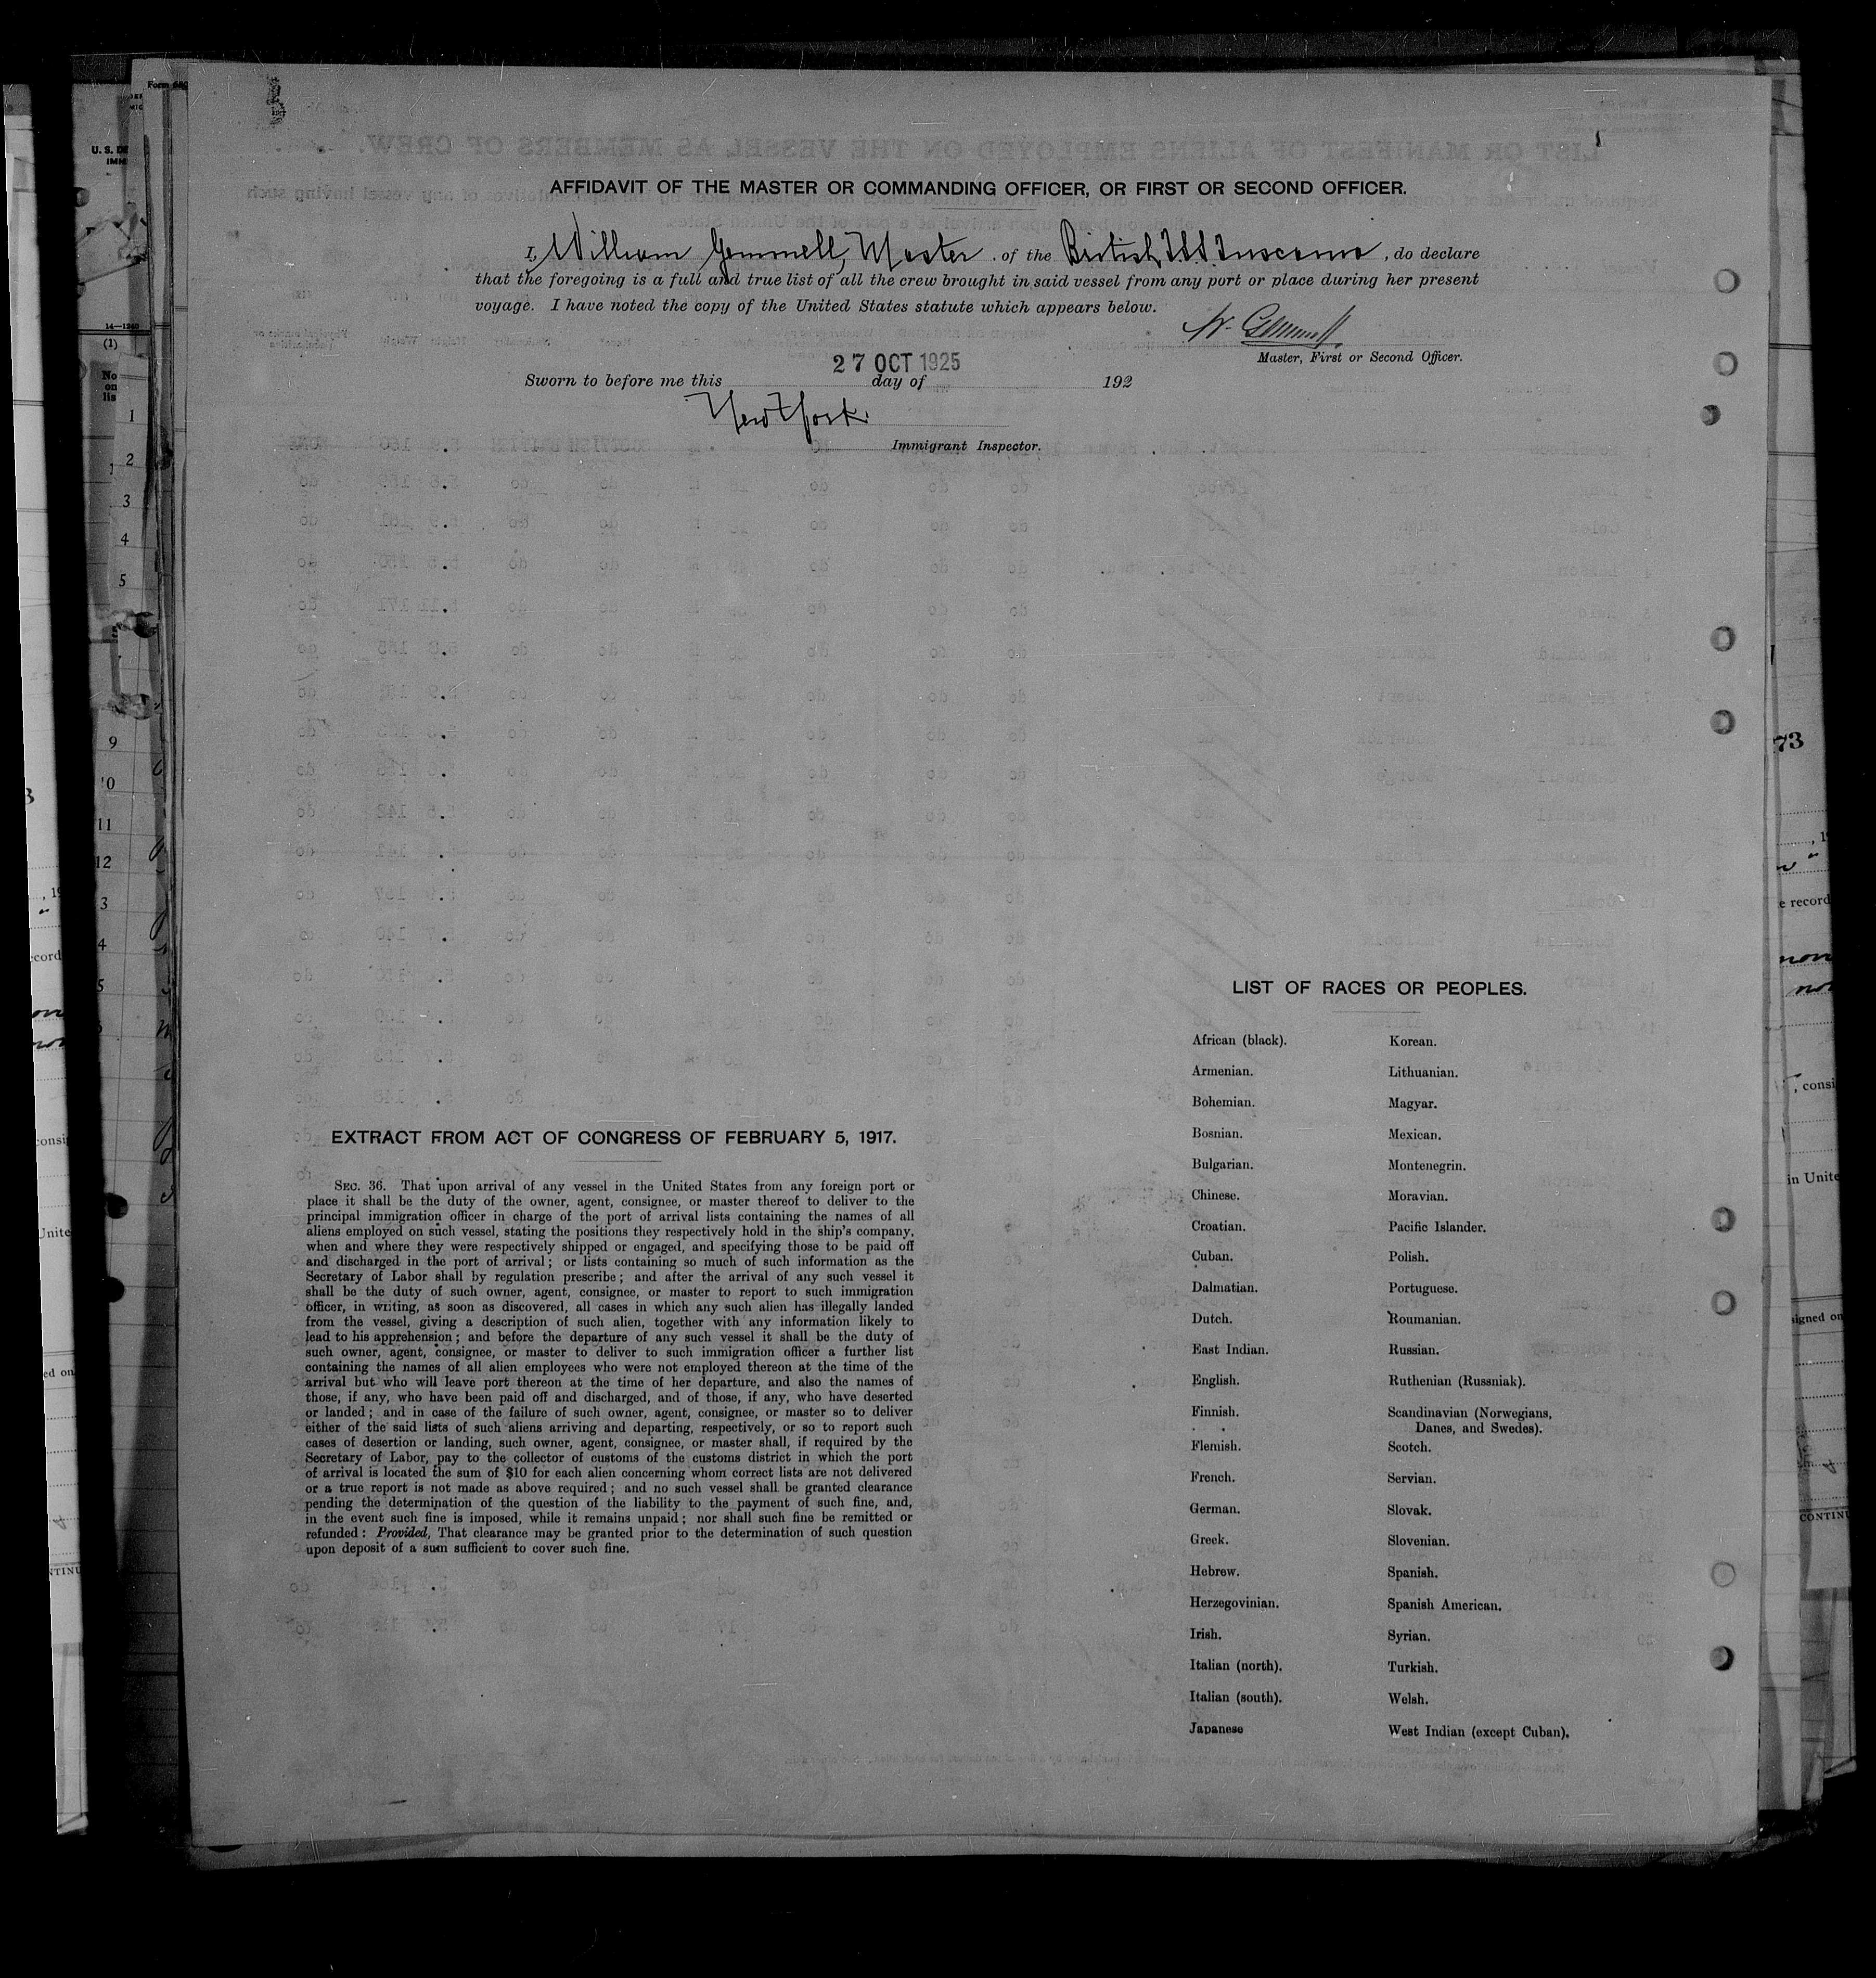 AFFIDAVIT OF THE MASTER OR COMMANDING OFFICER, OR FIRST OR SECOND OFFICER.
I, William Gemmell, Master , of the British T.S.S. Tuscania , do declare
that the foregoing is a full and true list of all the crew brought in said vessel from any port or place during her present
voyage. I have noted the copy of the United States statute which appears below.
W. Gemmell
Master, First or Second Officer.
27 OCT 1925
Sworn to before me this day of 192
New York
Immigrant Inspector.
EXTRACT FROM ACT OF CONGRESS OF FEBRUARY 5, 1917.
SEC. 36. That upon arrival of any vessel in the United States from any foreign port or
place it shall be the duty of the owner, agent, consignee, or master thereof to deliver to the
principal immigration officer in charge of the port of arrival lists containing the names of all
aliens employed on such vessel, stating the positions they respectively hold in the ship's company,
when and where they were respectively shipped or engaged, and specifying those to be paid off
and discharged in the port of arrival; or lists containing so much of such information as the
Secretary of Labor shall by regulation prescribe; and after the arrival of any such vessel it
shall be the duty of such owner, agent, consignee, or master to report to such immigration
officer, in writing, as soon as discovered, all cases in which any such alien has illegally landed
from the vessel, giving a description of such alien, together with any information likely to
lead to his apprehension; and before the departure of any such vessel it shall be the duty of
such owner, agent, consignee, or master to deliver to such immigration officer a further list
containing the names of all alien employees who were not employed thereon at the time of the
arrival but who will leave port thereon at the time of her departure, and also the names of
those, if any, who have been paid off and discharged, and of those, if any, who have deserted
or landed; and in case of the failure of such owner, agent, consignee, or master so to deliver
either of the said lists of such aliens arriving and departing, respectively, or so to report such
cases of desertion or landing, such owner, agent, consignee, or master shall, if required by the
Secretary of Labor, pay to the collector of customs of the customs district in which the port
of arrival is located the sum of $10 for each alien concerning whom correct lists are not delivered
or a true report is not made as above required; and no such vessel shall be granted clearance
pending the determination of the question of the liability to the payment of such fine, and,
in the event such fine is imposed, while it remains unpaid; nor shall such fine be remitted or
refunded: Provided, That clearance may be granted prior to the determination of such question
upon deposit of a sum sufficient to cover such fine.
LIST OF RACES OR PEOPLES.
African (black).
Armenian.
Bohemian.
Bosnian.
Bulgarian.
Chinese.
Croatian.
Cuban.
Dalmatian.
Dutch.
East Indian.
English.
Finnish.
Flemish.
French.
German.
Greek.
Hebrew.
Herzegovinian.
Irish.
Italian (north).
Italian (south).
Japanese
Korean.
Lithuanian.
Magyar.
Mexican.
Montenegrin.
Moravian.
Pacific Islander.
Polish.
Portuguese.
Roumanian.
Russian.
Ruthenian (Russniak).
Scandinavian (Norwegians,
Danes, and Swedes).
Scotch.
Servian.
Slovak.
Slovenian.
Spanish.
Spanish American.
Syrian.
Turkish.
Welsh.
West Indian (except Cuban).